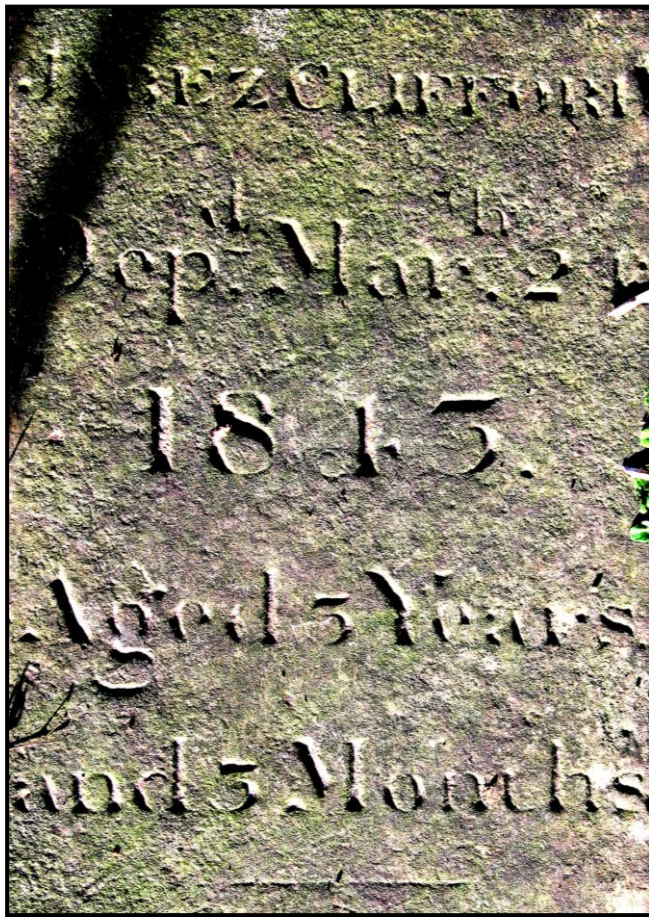 JABEZ CLIFFORD
Dep.ᵈ Mar.
1813.
Aged 3 Years
and 3 Months